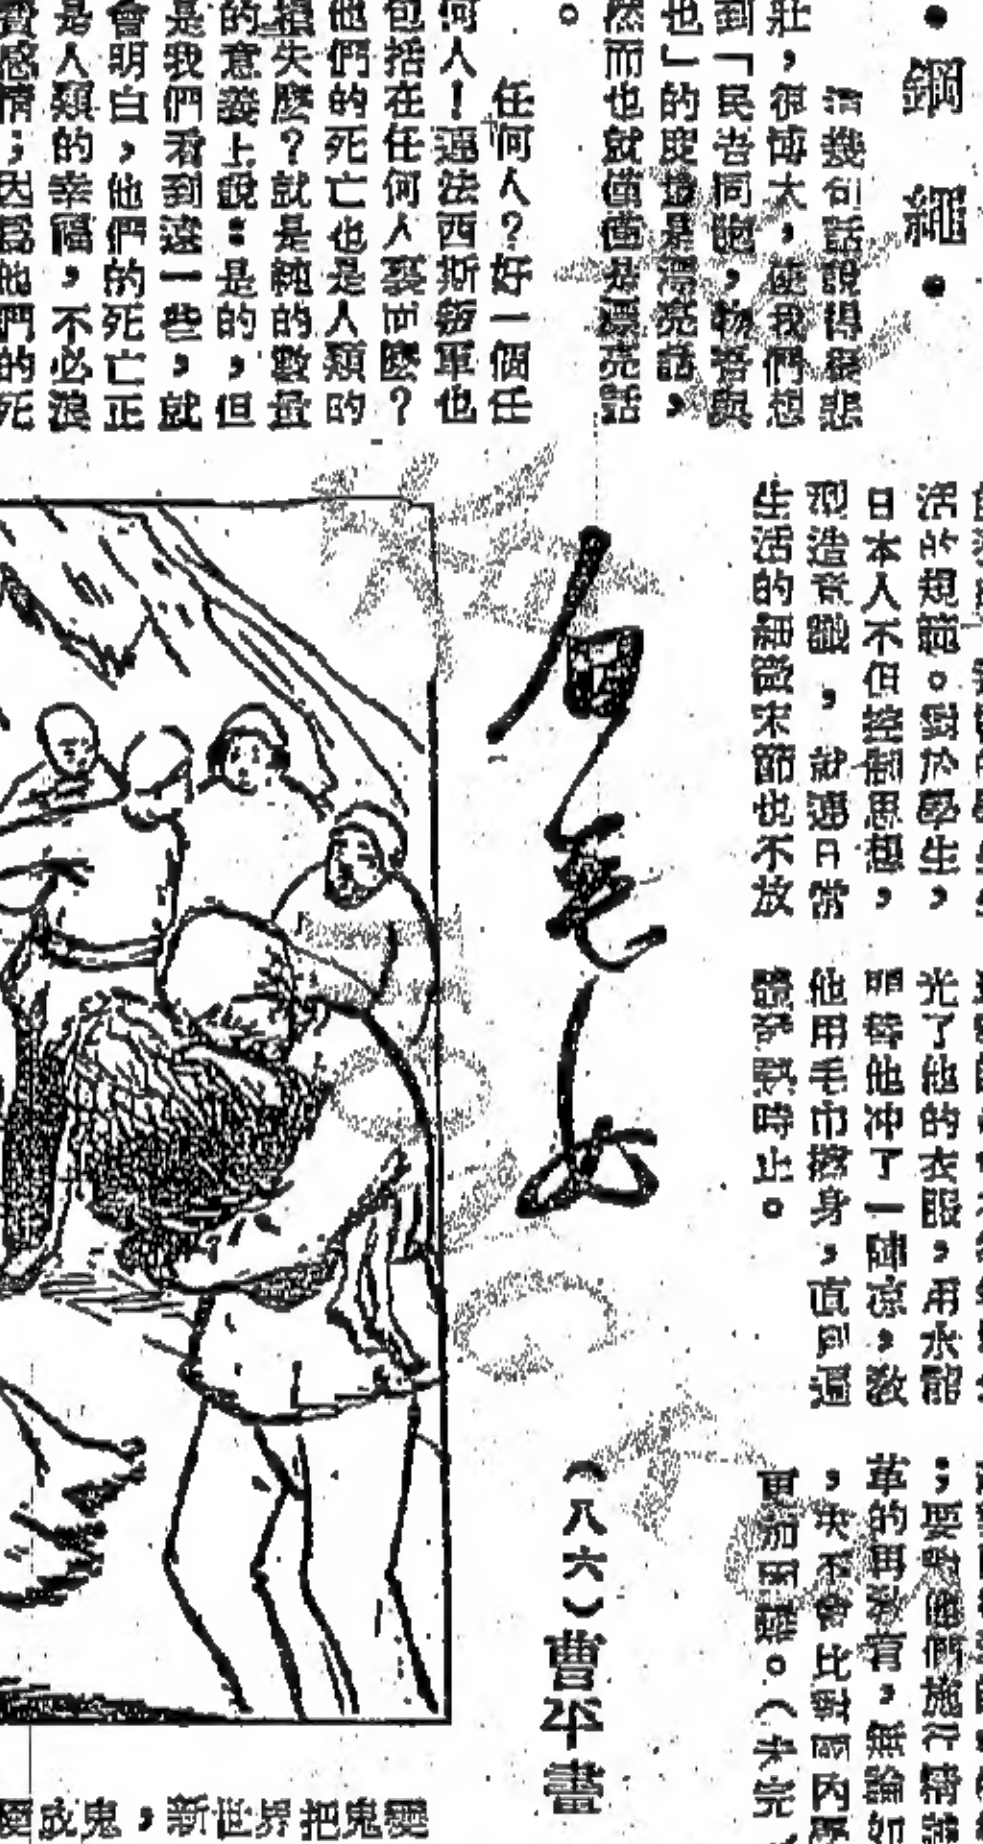 ・鋼繩・
幾句話說得很悲
壯，很博大，使我們想
到「民吾同胞，物吾與
也」的度量是漂亮話，
然而也就僅僅是漂亮話
。
任何人？好一個任
何人！連法西斯叛軍也
包括在任何人裏面麼？
他們的死亡也是人類的
損失麼？就是純的數量
的意義上說：是的，但
是我們看到遠一些，就
會明白，他們的死亡正
是人類的幸福，不必浪
費感情；因爲他們的死
活的規範。對於學生，
日本人不但控制思想，
造意識，就連日常
生活的細微末節也不放
光了他的衣服，用水龍
替他冲了一陣涼，敎
他用毛巾擦身，直到逼
體發熱時止。
；要對他們施行精
革的再敎育，無論如
，決不會比對國內學
更加困難。（未完
白毛女
（八六）曹平畫
變成鬼，新世界把鬼變